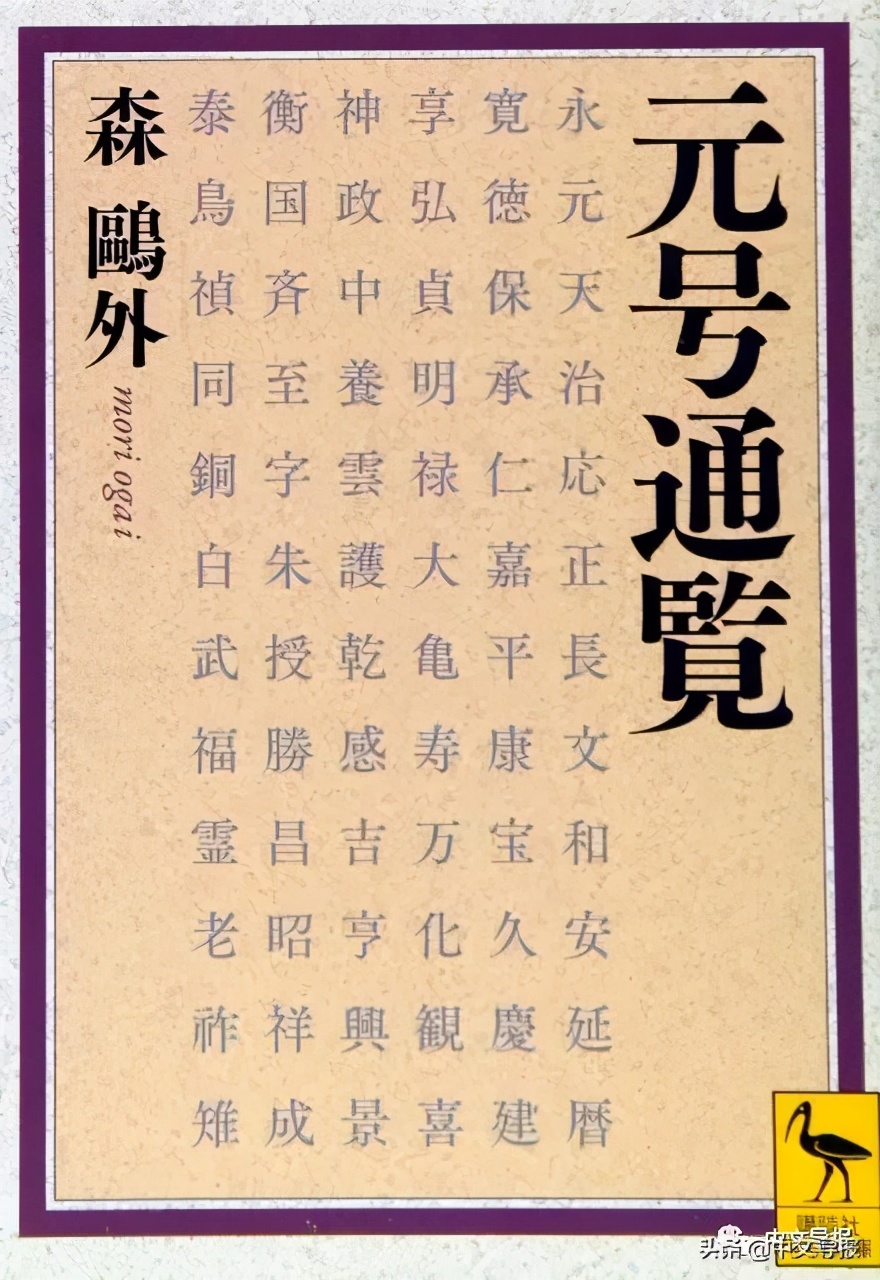 元号通覧
永元天治応正長文和安延暦
寛徳保承仁嘉平康宝久慶建
享弘貞明禄大亀寿万化観喜
神政中養雲護乾感吉亨興景
衡国斉至字朱授勝昌昭祥成
泰鳥禎同銅白武福霊老祚雉
森鷗外
mori ogai
头条@中文导报